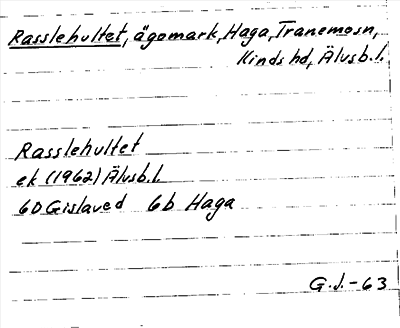 Rasslehultet, ägomark, Haga, Tranemosn,
Kinds hd, Älvsb.l.
Rasslehultet
ek (1962) Älvsb.l.
6D Gislaved 6b Haga
G.J.-63